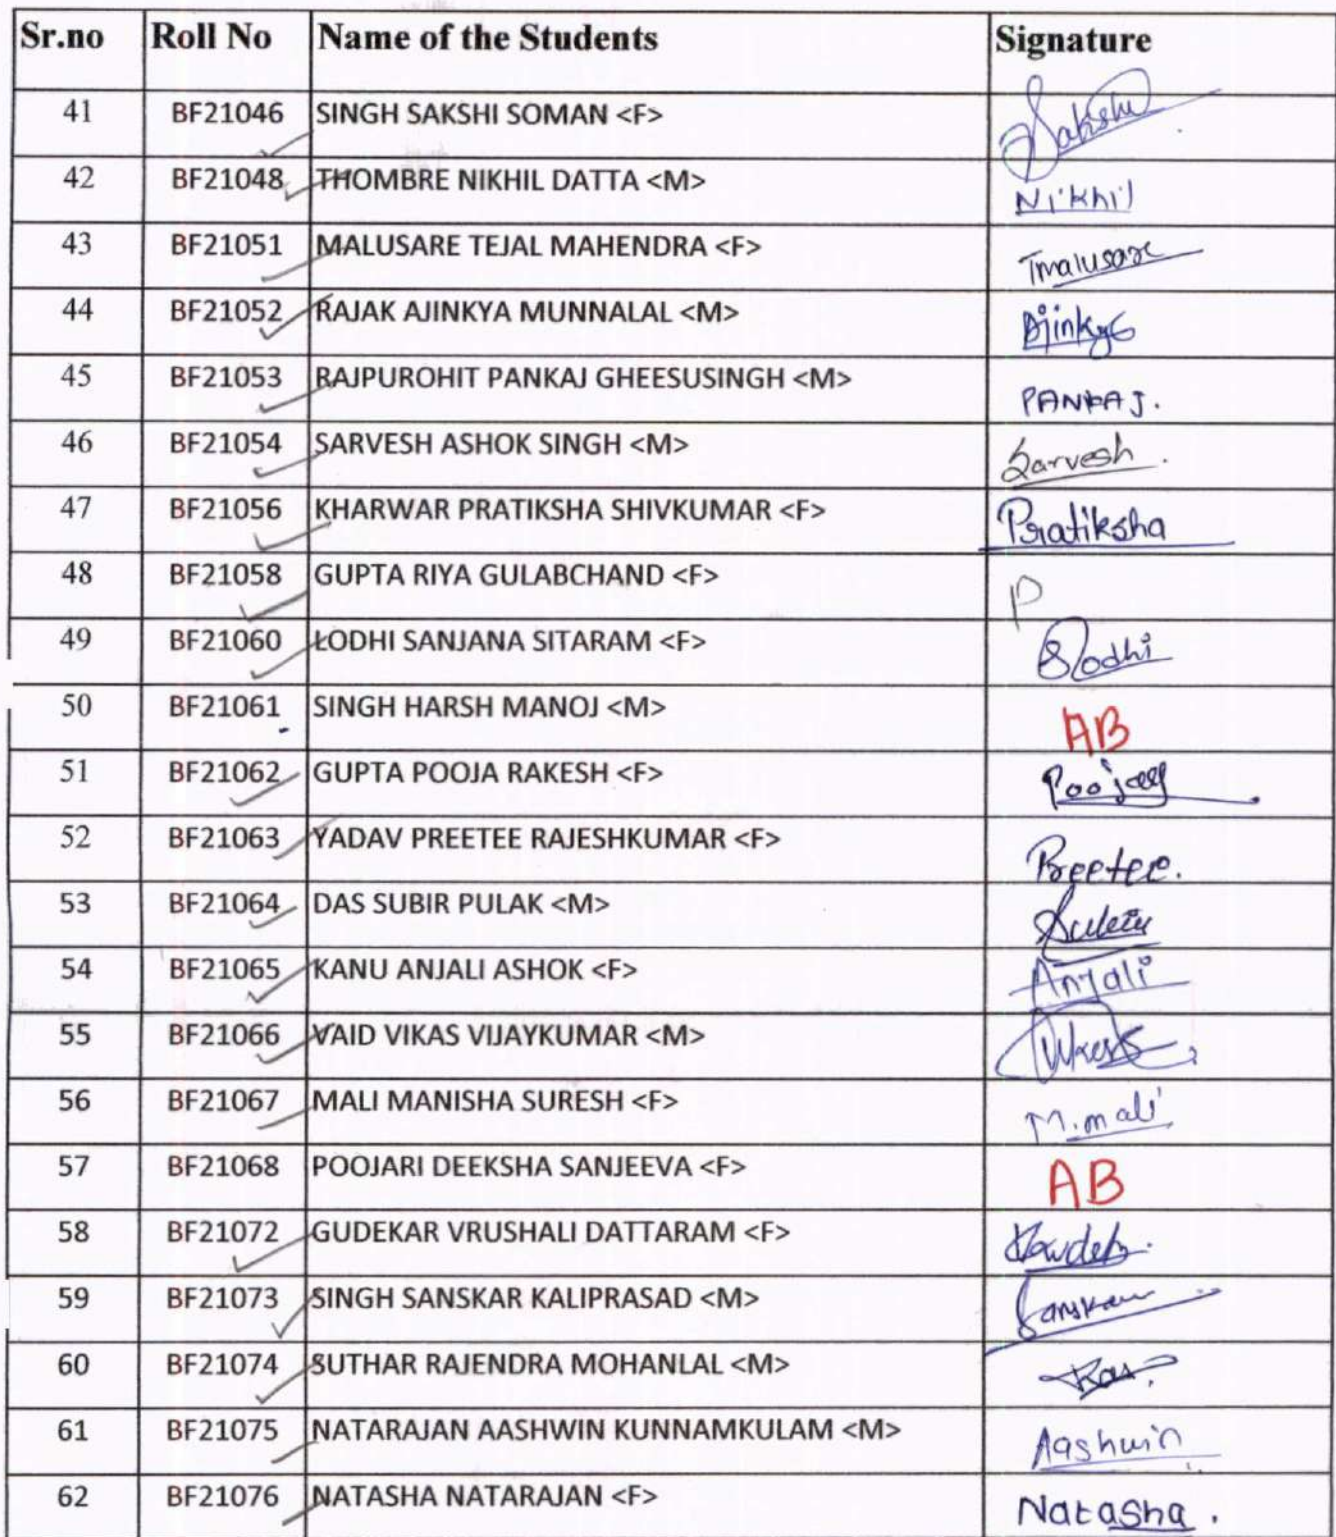 Sr.no Roll No Name of the Students Signature
41 BF21046 SINGH SAKSHI SOMAN <F> Sakshi
42 BF21048 THOMBRE NIKHIL DATTA <M> Nikhil
43 BF21051 MALUSARE TEJAL MAHENDRA <F> Tmalusare
44 BF21052 RAJAK AJINKYA MUNNALAL <M> Ajinkya
45 BF21053 RAJPUROHIT PANKAJ GHEESUSINGH <M> PANKAJ.
46 BF21054 SARVESH ASHOK SINGH <M> Sarvesh.
47 BF21056 KHARWAR PRATIKSHA SHIVKUMAR <F> Pratiksha
48 BF21058 GUPTA RIYA GULABCHAND <F> P
49 BF21060 LODHI SANJANA SITARAM <F> SLodhi
50 BF21061 SINGH HARSH MANOJ <M> AB
51 BF21062 GUPTA POOJA RAKESH <F>
52 BF21063 YADAV PREETEE RAJESHKUMAR <F> Preetee.
53 BF21064 DAS SUBIR PULAK <M>
54 BF21065 KANU ANJALI ASHOK <F> Anjali
55 BF21066 VAID VIKAS VIJAYKUMAR <M>
56 BF21067 MALI MANISHA SURESH <F> M.mali
57 BF21068 POOJARI DEEKSHA SANJEEVA <F> AB
58 BF21072 GUDEKAR VRUSHALI DATTARAM <F>
59 BF21073 SINGH SANSKAR KALIPRASAD <M> Sanskar
60 BF21074 SUTHAR RAJENDRA MOHANLAL <M>
61 BF21075 NATARAJAN AASHWIN KUNNAMKULAM <M> Aashwin
62 BF21076 NATASHA NATARAJAN <F> Natasha.